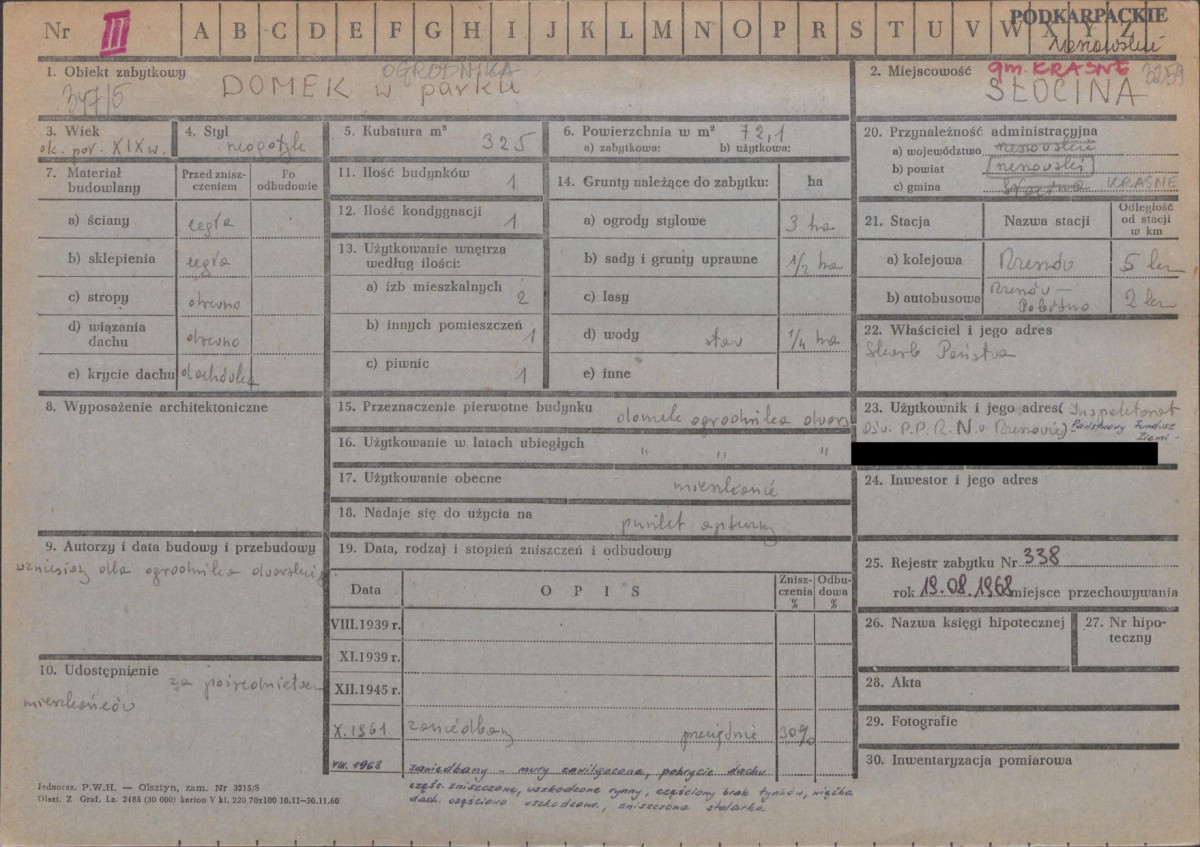 Nr III A B C D E F G H I J K L M N O P R S T U V W X Y Z
PODKARPACKIE
rzeszowskie
1. Obiekt zabytkowy
347/5
OGRODNIKA
DOMEK w parku
2. Miejscowość gm. KRASNE 3259
SŁOCINA
3. Wiek
ok. poł. XIX w.
4. Styl
neogotyk
5. Kubatura m³
325
6. Powierzchnia w m² 72,1
a) zabytkowa: b) użytkowa:
7. Materiał budowlany
Przed zniszczeniem
Po odbudowie
a) ściany cegła
b) sklepienia cegła
c) stropy drewno
d) wiązania dachu drewno
e) krycie dachu dachówka
8. Wyposażenie architektoniczne
9. Autorzy i data budowy i przebudowy
wzniesiony dla ogrodnika dworskiego
10. Udostępnienie za pośrednictwem
mieszkańców
11. Ilość budynków 1
12. Ilość kondygnacji 1
13. Użytkowanie wnętrza
według ilości:
a) izb mieszkalnych 2
b) innych pomieszczeń 1
c) piwnic 1
14. Grunty należące do zabytku: ha
a) ogrody stylowe 3 ha
b) sady i grunty uprawne 1/2 ha
c) lasy
d) wody staw 1/4 ha
e) inne
15. Przeznaczenie pierwotne budynku domek ogrodnika dwors
16. Użytkowanie w latach ubiegłych " " "
17. Użytkowanie obecne mieszkanie
18. Nadaje się do użycia na punkt apteczny
19. Data, rodzaj i stopień zniszczeń i odbudowy
Data
O P I S
Zniszczenia %
Odbudowa %
VIII.1939 r.
XI.1939 r.
XII.1945 r.
X.1961 zaniedbany przeciętnie 30%
VIII. 1968 zaniedbany - mury zawilgocone, pokrycie dachu
częśc. zniszczone, uszkodzone rynny, częściowy brak tynków, więźba
dach. częściowo uszkodzona, zniszczona stolarka.
20. Przynależność administracyjna
a) województwo rzeszowskie
b) powiat rzeszowski
c) gmina Słocina KRASNE
21. Stacja
Nazwa stacji
Odległość od stacji w km
a) kolejowa Rzeszów 5 km
b) autobusowa Rzeszów - Pobitno 2 km
22. Właściciel i jego adres
Skarb Państwa
23. Użytkownik i jego adres (Inspektorat
Ośw. P.P.R.N. w Rzeszowie) Państwowy Fundusz
Ziemi -
24. Inwestor i jego adres
25. Rejestr zabytku Nr 338
rok 19.08.1968 miejsce przechowywania
26. Nazwa księgi hipotecznej
27. Nr hipoteczny
28. Akta
29. Fotografie
30. Inwentaryzacja pomiarowa
Jednoraz. P.W.H. — Olsztyn, zam. Nr 3215/S
Olszt. Z Graf. Lz. 2485 (30 000) karton V kl. 220 70x100 10.11—30.11.60